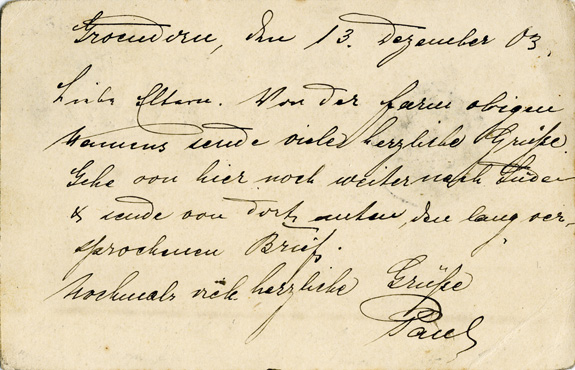 den 13. Dezember 03.
Liebe Eltern. Von der farm obigen
Namens sende viele herzliche Grüße.
Gehe von hier noch weiter nach Süden
& sende von dort unten den lang ver-
sprochenen Brief.
Nochmals viele herzliche Grüße
Paul